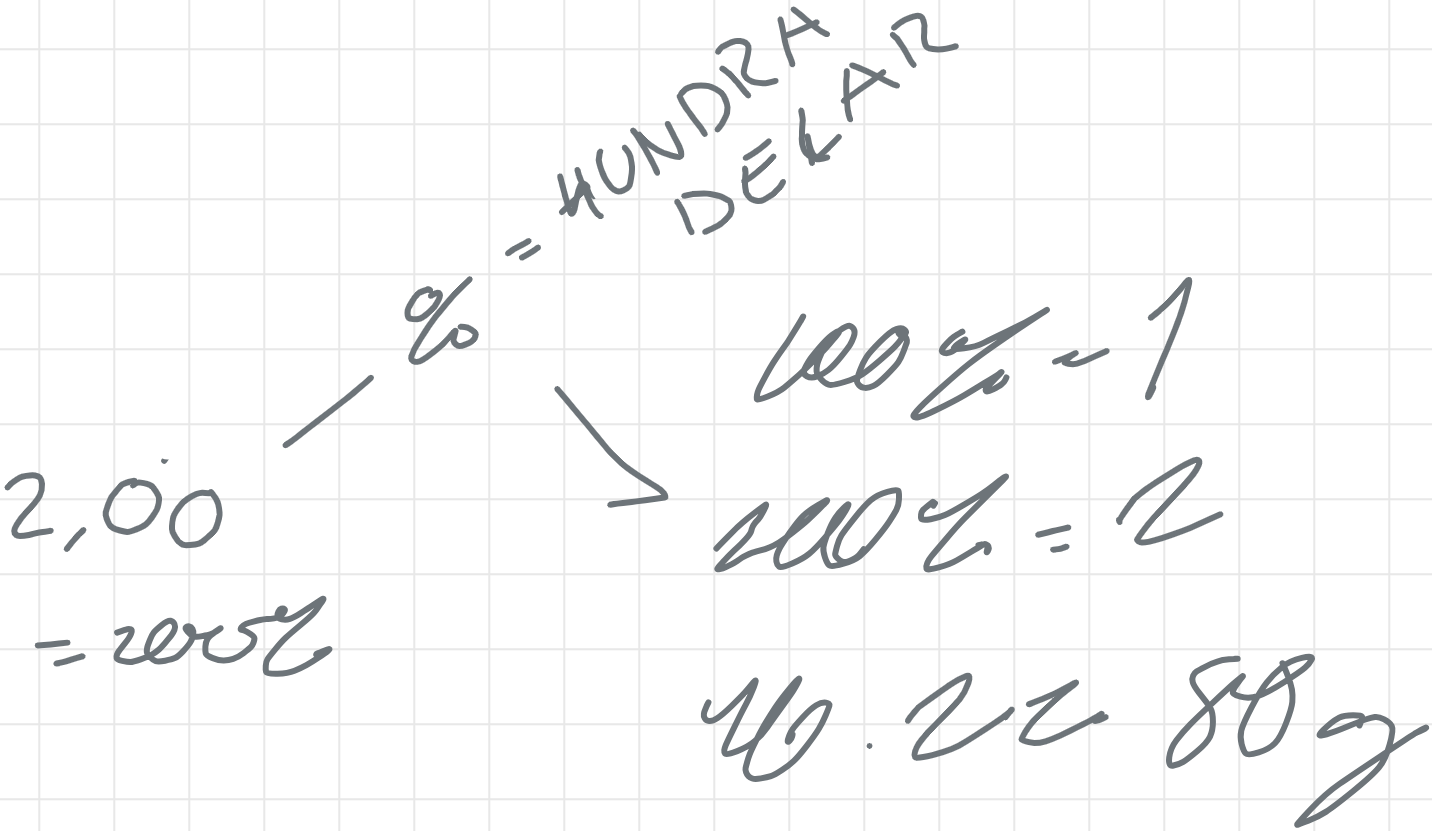 % = HUNDRA
DELAR
100% = 1
2,00
200% = 2
= 200%
40 · 2 = 80 g